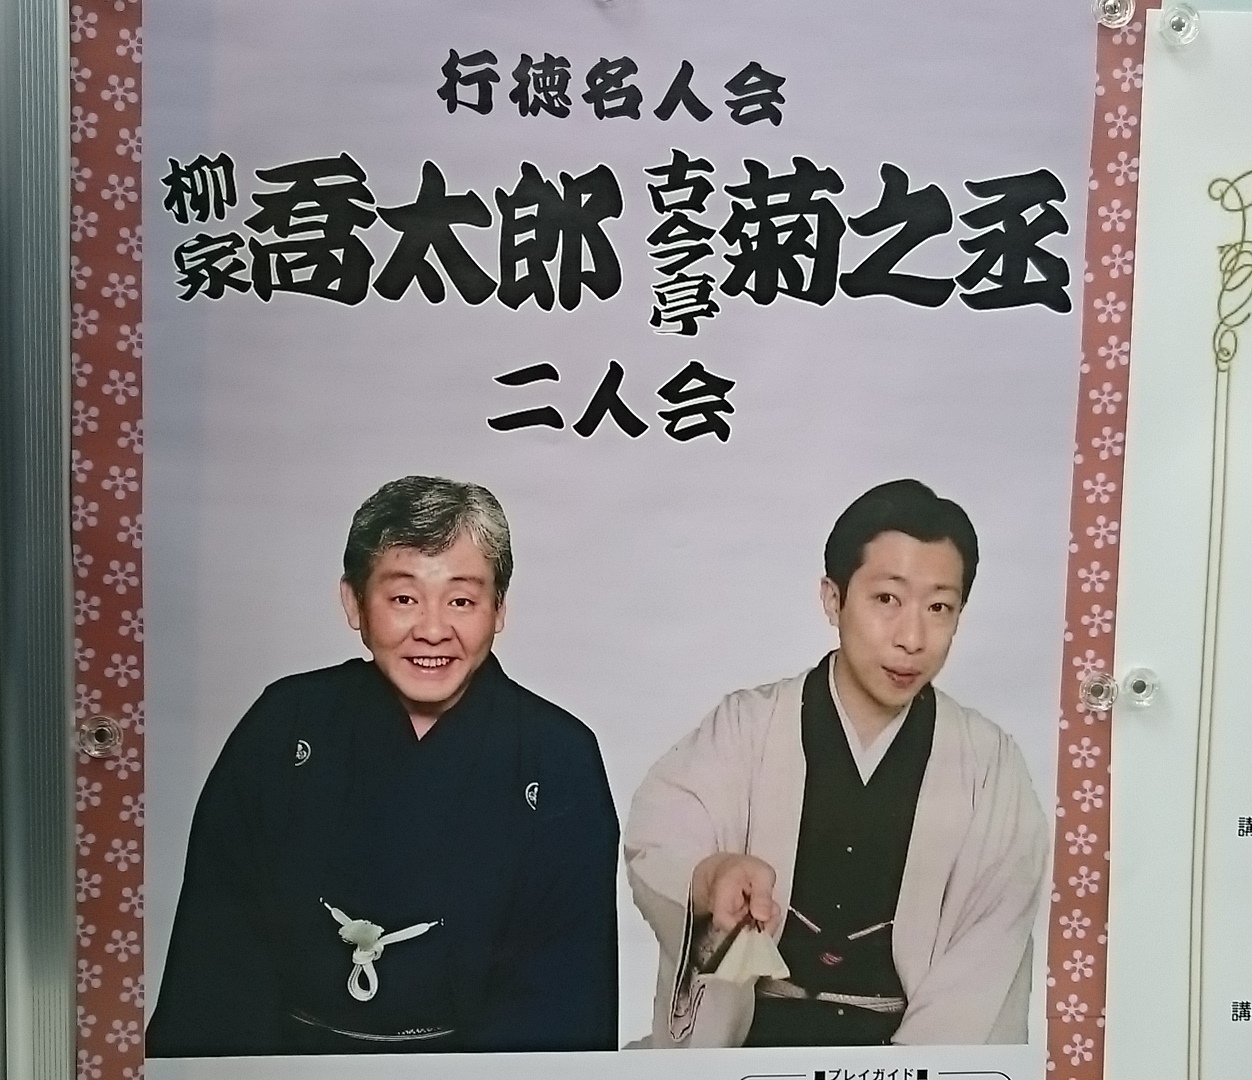 行徳名人会
柳家 喬太郎 古今亭 菊之丞
二人会
■プレイガイド■
講
講